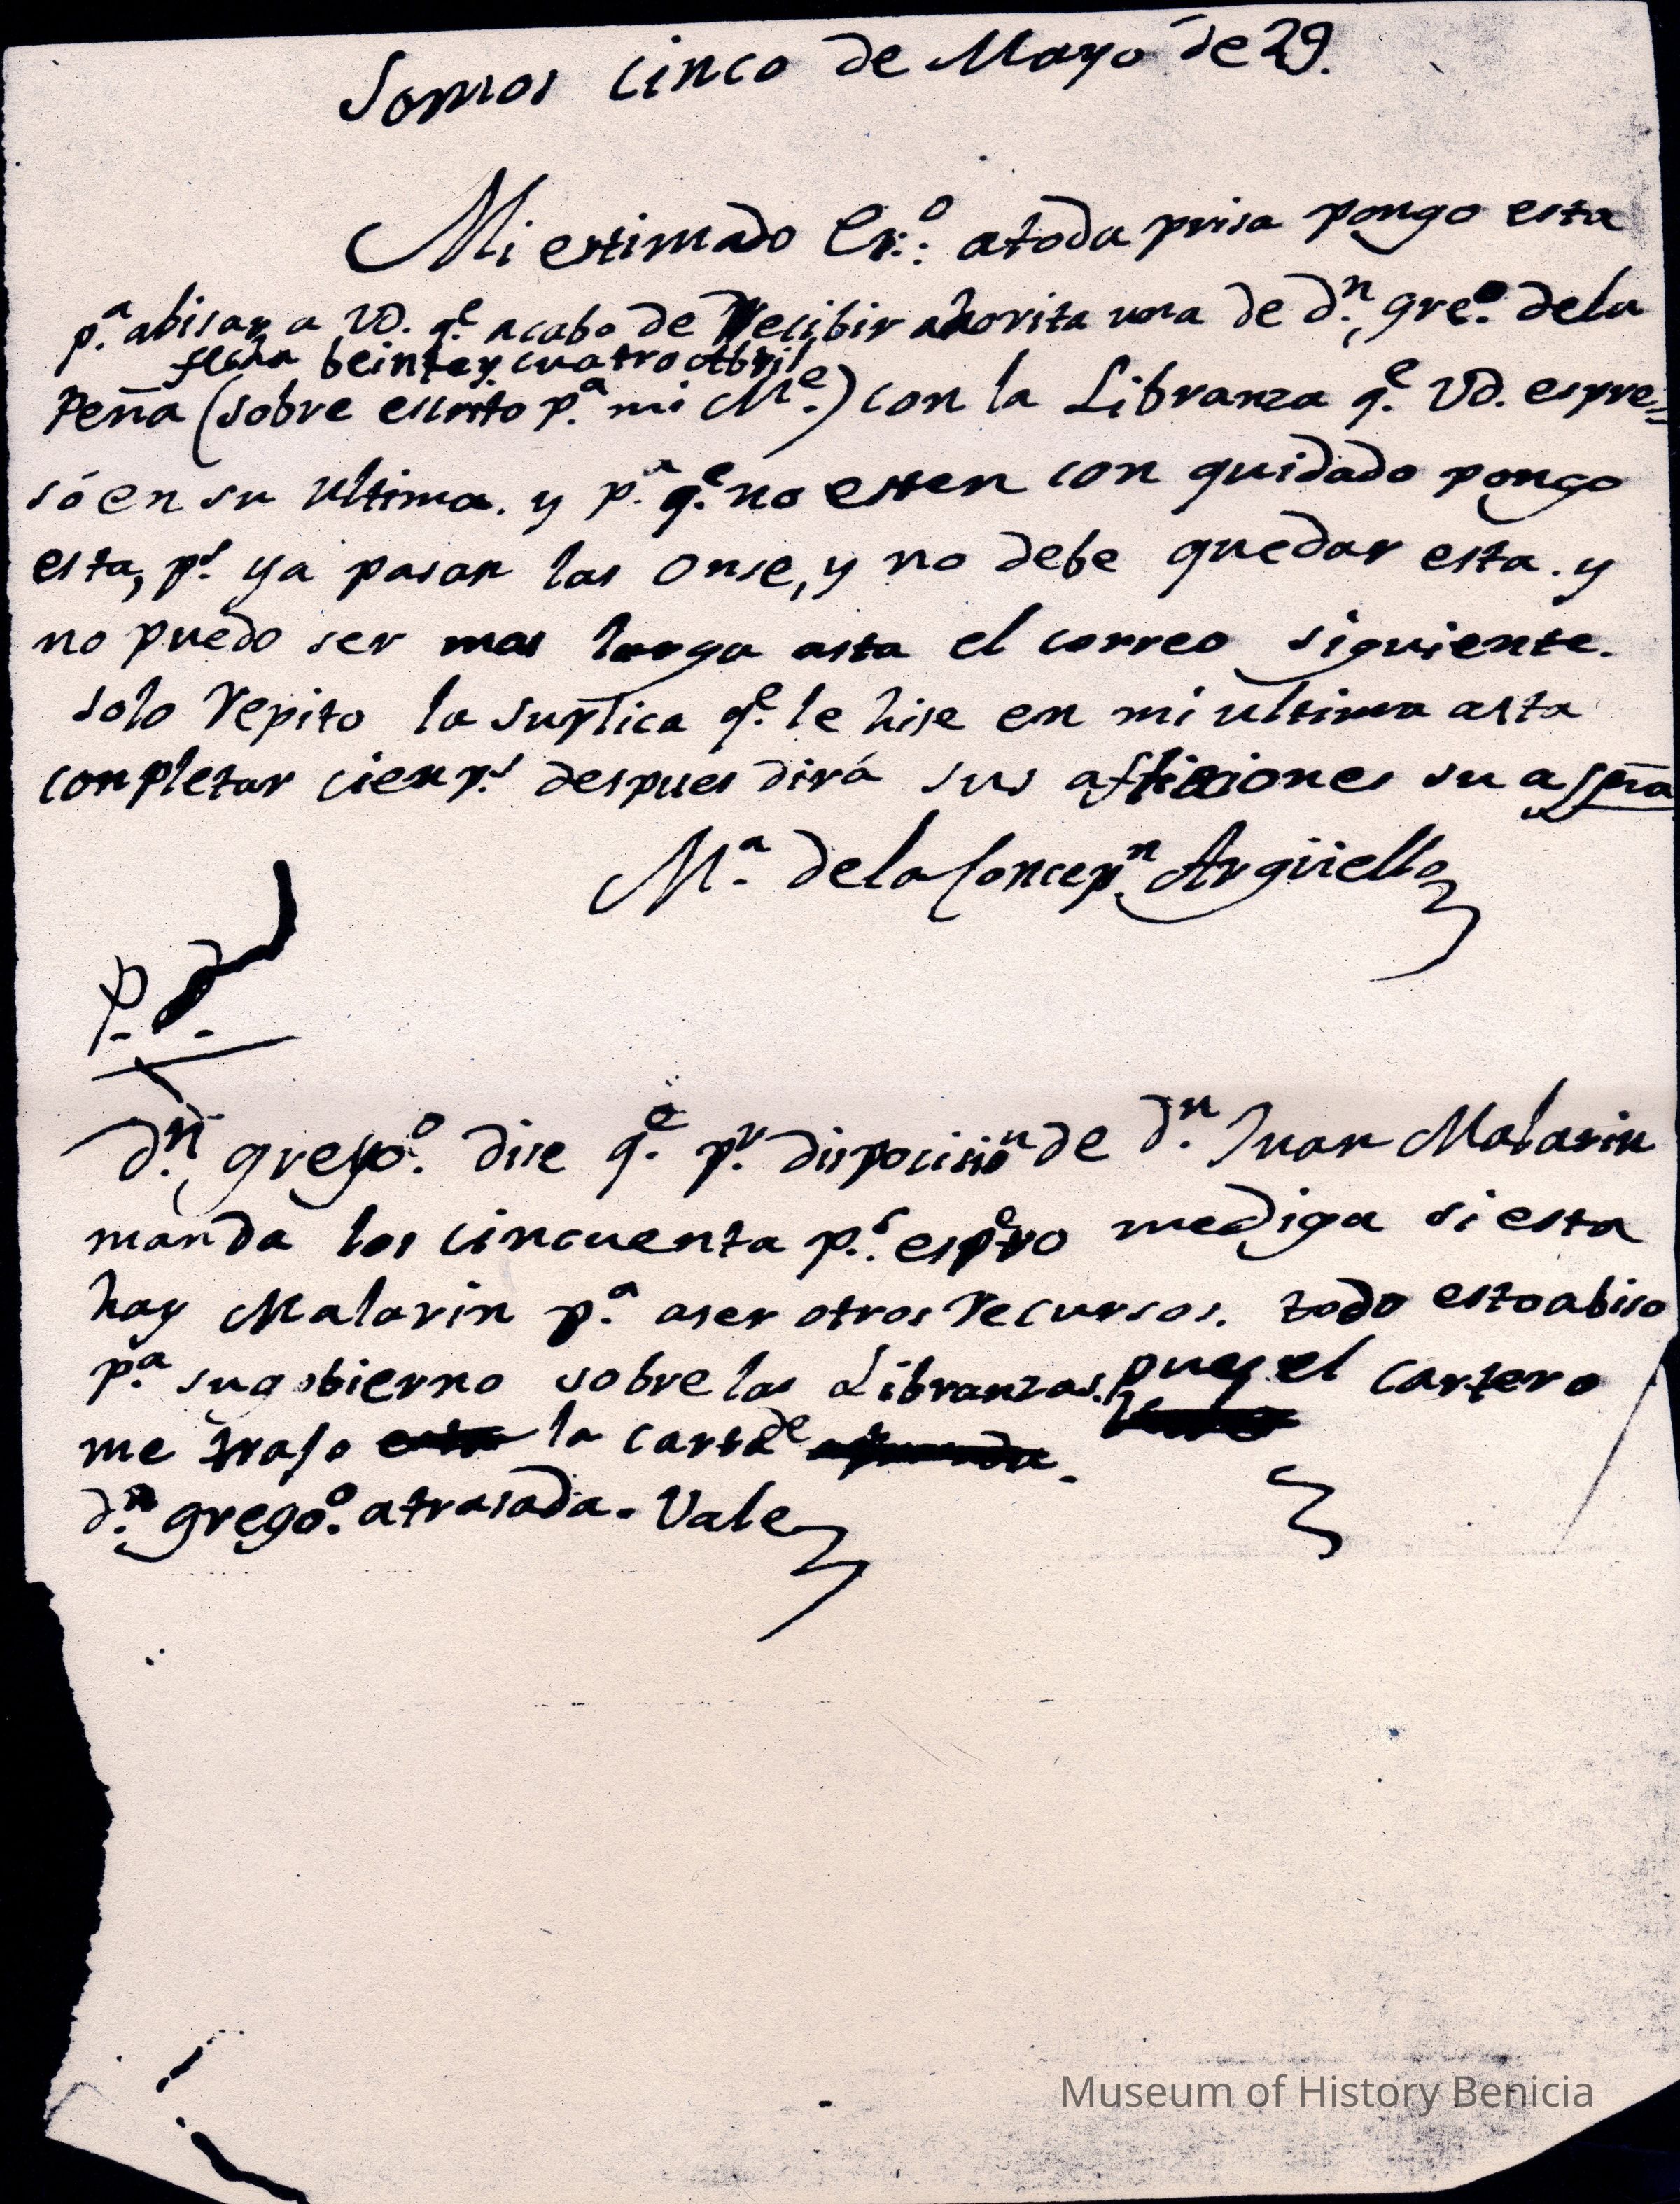 Somos cinco de Mayo de 29.
Mi estimado Er.º: atoda prisa pongo esta
p.ª abisar a VD. q.e acabo de Recibir ahorita una de d.n gre.º dela
fecha beinte y cuatro Abril
Peña (sobre escrito p.ª mi M.e) con la Libranza q.e VD. espre=
só en su ultima. y p.ª q.e no esten con quidado pongo
esta, p.s ya pasan las onse, y no debe quedar esta. y
no puedo ser mas larga asta el correo siguiente.
solo Repito la suplica q.e le hise en mi ultima asta
conpletar cien p.s despues dirá sus aflicciones su
M.ª dela Concep.n Argüello
P. d.
d.n grego.º dise q.e p.r disposision de d.n Juan Malarin
manda los cincuenta p.s espero mediga si esta
hay Malarin p.ª aser otros Recursos. todo estoabiso
p.ª sugobierno sobre las Libranzas. pues el cartero
me trajo la carta de
d.n grego.º atrasada. Vale
Museum of History Benicia